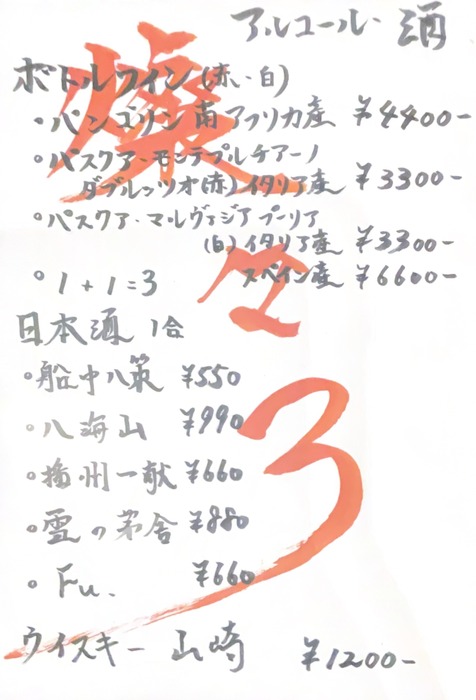 アルコール・酒
ボトルワイン(赤・白)
・パンゴリン 南アフリカ産 ¥4400-
・パスクア・モンテプルチアーノ
ダブルッツオ(赤)イタリア産 ¥3300-
・パスクア・マルヴァジアプーリア
(白)イタリア産 ¥3300-
・1+1=3 スペイン産 ¥6600-
日本酒 1合
・船中八策 ¥550
・八海山 ¥990
・播州一献 ¥660
・雲の茅舎 ¥880
・Fu. ¥660
ウイスキー 山崎 ¥1200-
燦
々